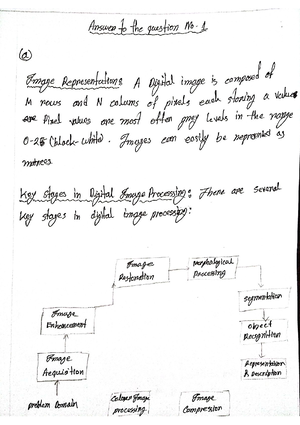 Answer to the question No. 1
(a)
Image Representation: A Digital image is composed of
M rows and N colums of pixels each storing a value
Pixel values are most often grey levels in the range
0-25 (black-white). Images can easily be represented as
matrices
Key stages in Digital Image Processing: There are several
Key stages in digital image processing:
Image
Restoration
Morphological
Processing
Image
Enhancement
Segmentation
Object
Recognition
Image
Acquisition
Representation
& Description
problem Domain
Colour Image
processing
Image
Compression